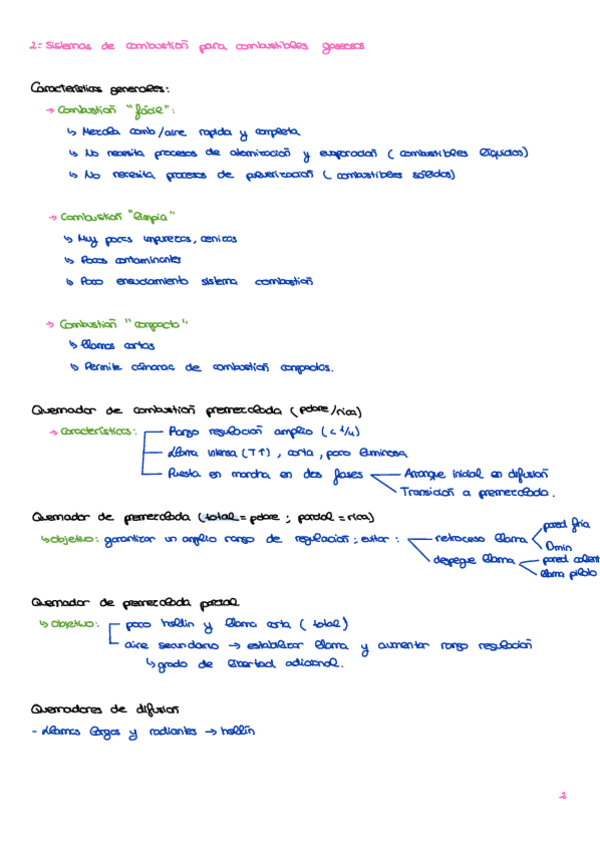 2: Sistemas de combustión para combustibles gaseosos
Características generales:
→ Combustión "fácil":
↳ Mezcla comb/aire rapida y completa
↳ No necesita procesos de atomización y evaporación (combustibles líquidos)
↳ No necesita procesos de pulverización (combustibles sólidos)
→ Combustión "limpia"
↳ Muy pocas impurezas, cenizas
↳ Pocos contaminantes
↳ Poco ensuciamiento sistema combustión
→ Combustión "compacta"
↳ llamas cortas
↳ Permite cámaras de combustión compactas.
Quemador de combustión premezclada (pobre/rica)
→ Características: Rango regulación amplio (< 1/4)
Llama intensa (T↑), corta, poco luminosa
Puesta en marcha en dos fases Arranque inicial en difusión
Transición a premezclada.
Quemador de premezclada (total = pobre ; parcial = rica)
↳ objetivo: garantizar un amplio rango de regulación ; evitar : retroceso llama pared fría
Dmin
despegue llama pared calient
llama piloto
Quemador de premezclada parcial
↳ Objetivo: poco hollín y llama corta (total)
aire secundario → estabilizar llama y aumentar rango regulación
↳ grado de libertad adicional.
Quemadores de difusión
- Llamas largas y radiantes → hollín
2